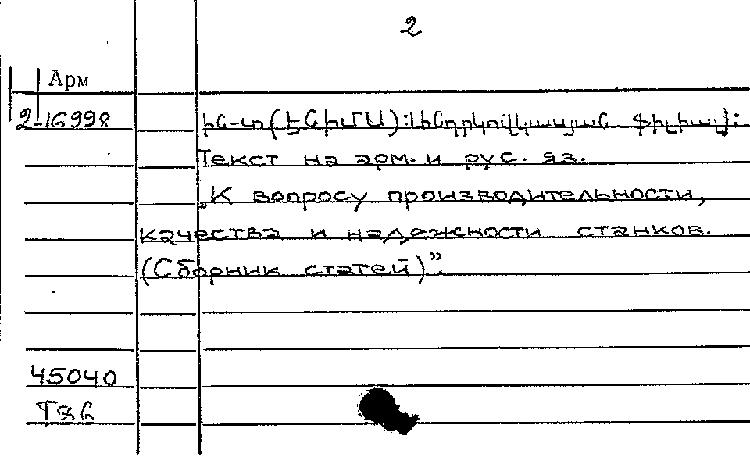 2
Арм
2-16998 ին-տ (ԷՆԻՄՍ): Լենդրկովկասյան ֆիլիալ]:
Текст на арм. и рус. яз.
„К вопросу производительности,
качества и надежности станков.
(Сборник статей)”.
45040